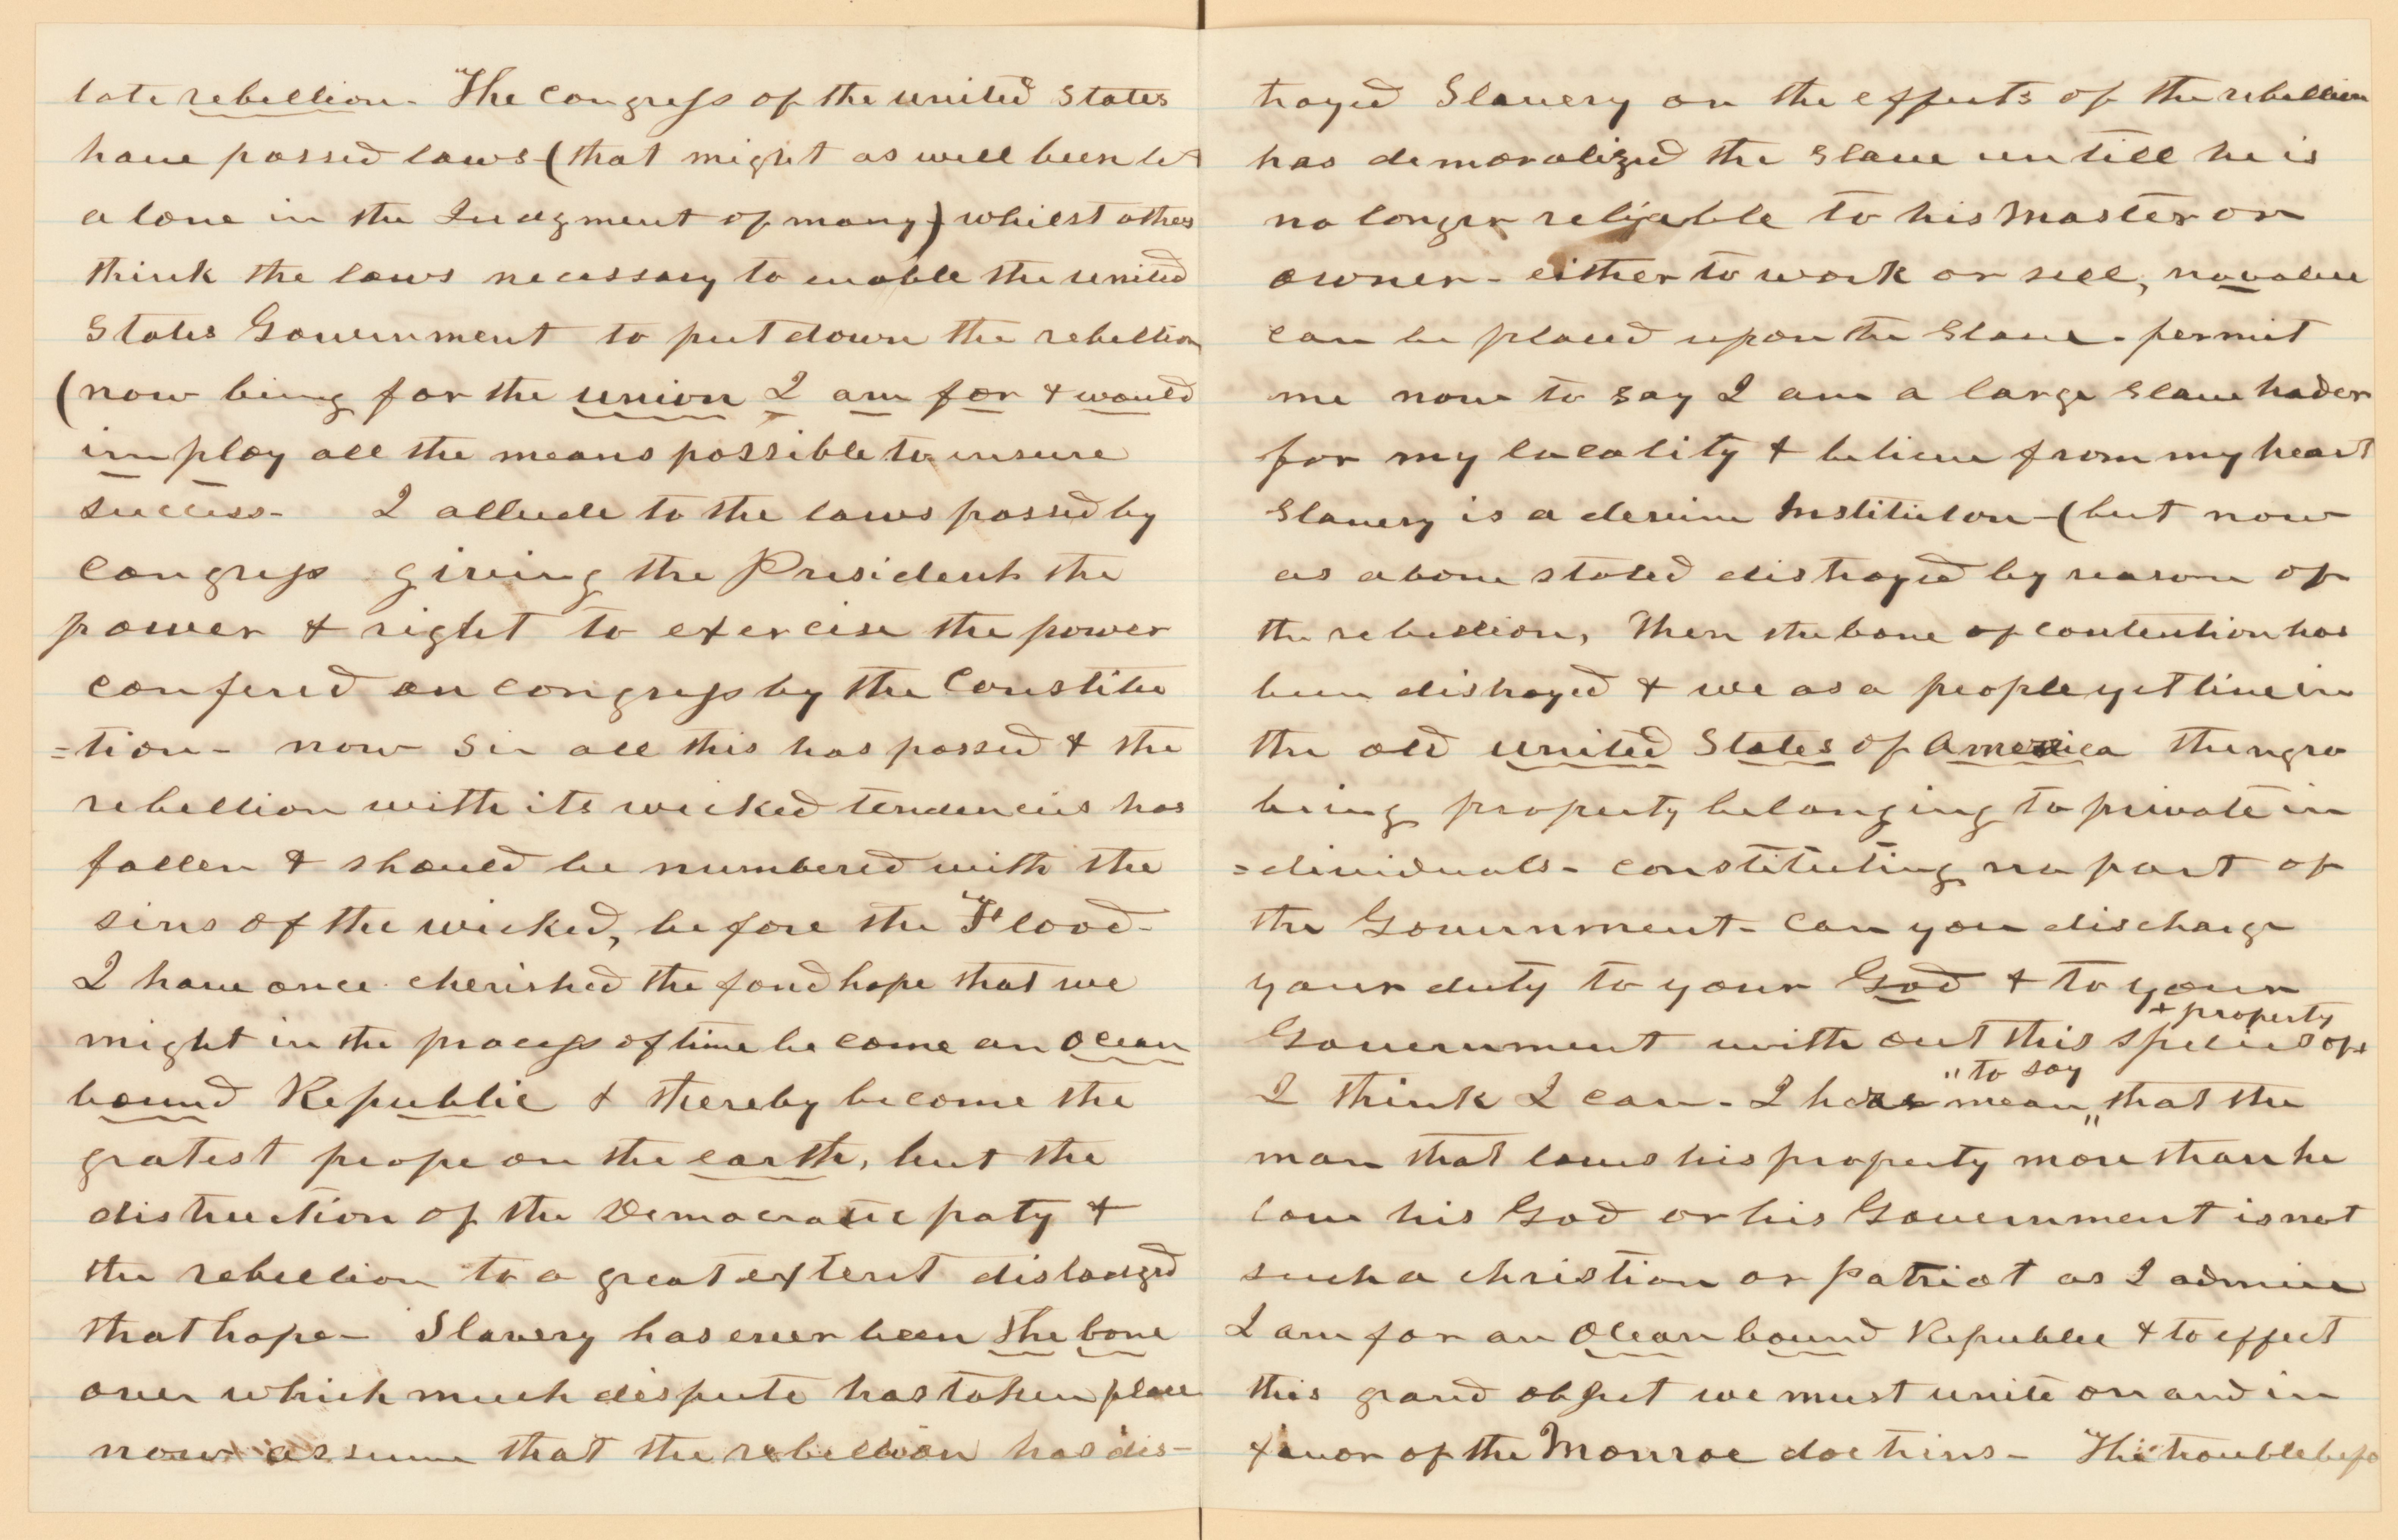 late rebellion. The Congress of the united States
have passed laws (that might as well been let
alone in the Judgment of many) whilst others
think the laws necessary to enable the united
States Government to put down the rebellion
(now being for the union I am for & would
imploy all the means possible to insure
success- I allude to the laws passed by
Congress giving the President the
power & right to exercise the power
confered on congress by the Constitu
=tion- now Sir all this has passed & the
rebellion with its wicked tendencies has
fallen & should be numbered with the
sins of the wicked, before the Flood-
I have once cherished the fond hope that we
might in the process of time become an Ocean
bound Republic & thereby become the
gratest peope on the earth, but the
distruction of the Democratic paty &
the rebellion to a great extent dislodged
that hope- Slavery has ever been the bone
over which much dispute has taken place
now assume that the rebellion has dis-
troyed Slavery or the effects of the rebellion
has demoralized the Slave untill he is
no longer reliable to his Master or
owner- either to work or sell, no value
can be placed upon the Slave. permit
me now to say I am a large Slave hoder
for my locality & believe from my heart
Slavery is a devine Institution-(but now
as above stated distroyed by reason of
the rebellion, Then the bone of contention has
been distroyed & we as a people yet live in
the old United States of America the ngro
being property belonging to private in
=dividuals- constituting no part of
the Government- Can you discharge
your duty to your God & to your
Government with out this species of + property
I think I can- I here mean "to say" that the
man that loves his property more than he
love his God or his Government is not
such a christian or patriot as I admire
I am for an Ocean bound Republic & to effect
this grand object we must unite on and in
favor of the Monroe doctrins- The trouble befo